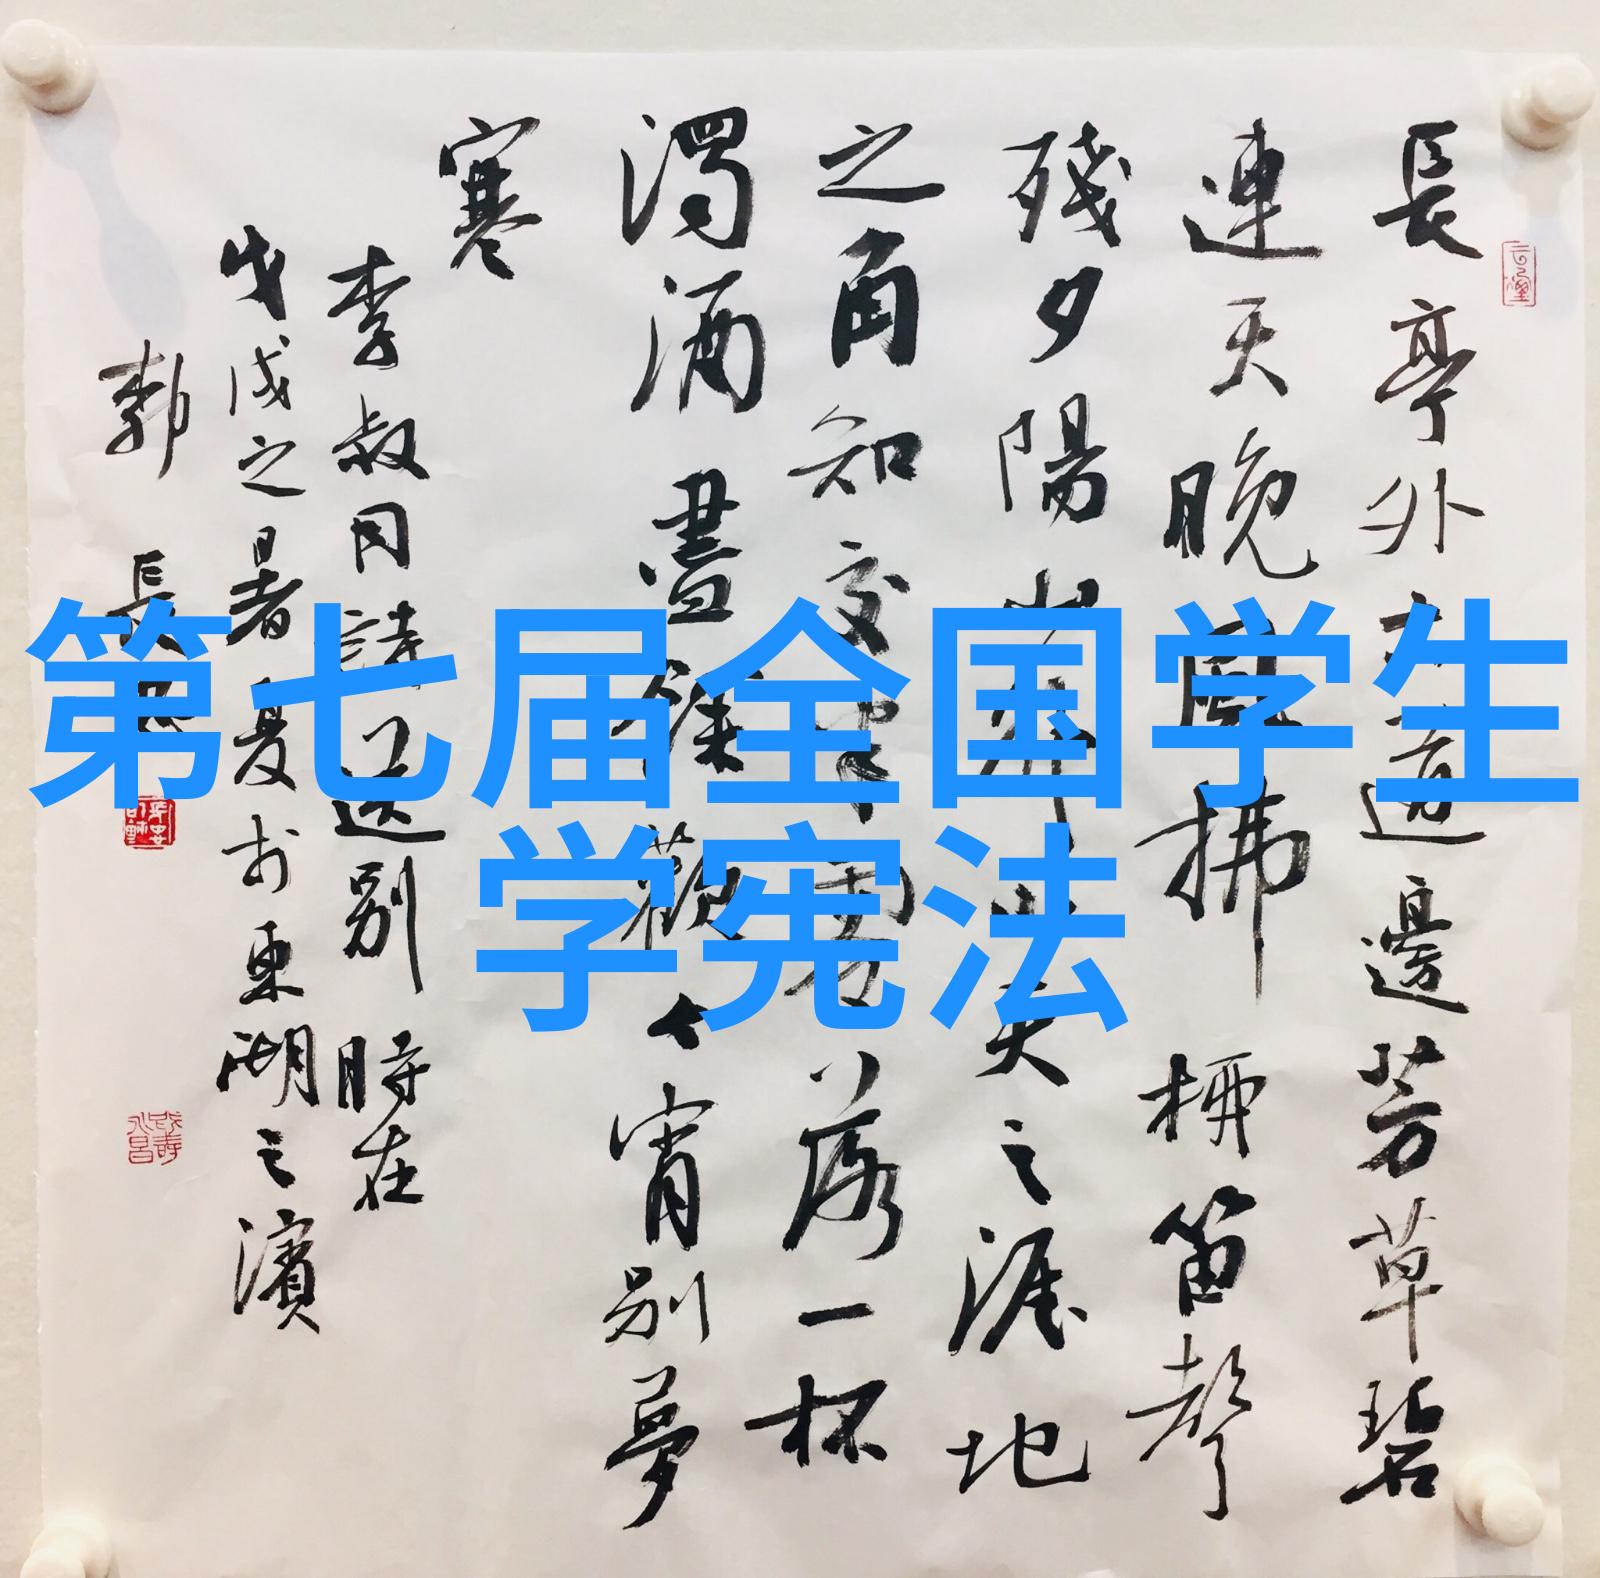 第七届全国学生
学宪法
長亭外古道邊芳草碧
連天晚風拂柳笛聲
殘夕陽山外山天之涯地
之角知交半零落一杯
濁酒盡餘歡今宵別夢
寒
李叔同詩送別 時在
戊戌之暑夏於東湖之濱
郭 長